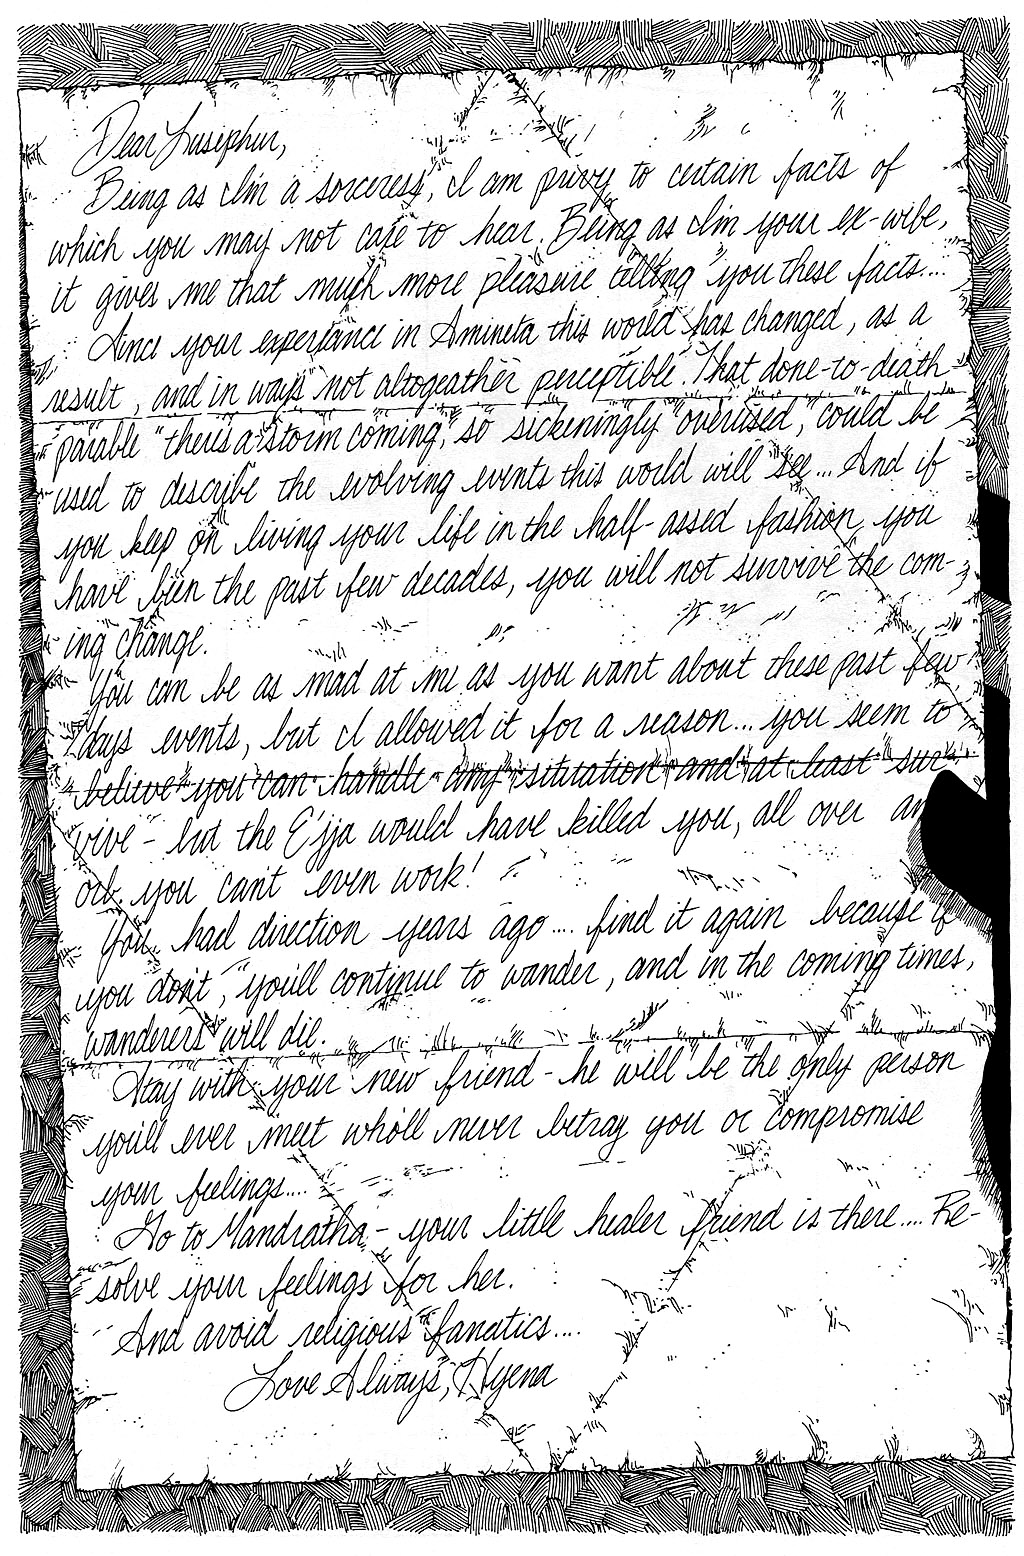 Dear Lusephur,
Being as I'm a sorceress, I am privy to certain facts of
which you may not care to hear. Being as I'm your ex-wife,
it gives me that much more pleasure telling you these facts....
Since your experiance in Amineta this world has changed, as a
result, and in ways not altogeather perceptible. That done-to-death
parable "there's a storm coming," so sickeningly overused, could be
used to describe the evolving events this world will see... And if
you keep on living your life in the half-assed fashion you
have been the past few decades, you will not survive the com-
ing change.
You can be as mad at me as you want about these past few
days events, but I allowed it for a reason... you seem to
believe you can handle any situation and at least sur-
vive - but the E'jja would have killed you, all over an
orb you can't even work!
You had direction years ago.... find it again because if
you don't, you'll continue to wander, and in the coming times,
wanderers will die.
Stay with your new friend - he will be the only person
you'll ever meet who'll never betray you or compromise
your feelings....
Go to Mandratha - your little healer friend is there.... Re-
solve your feelings for her.
And avoid religious fanatics....
Love Always, Hyena